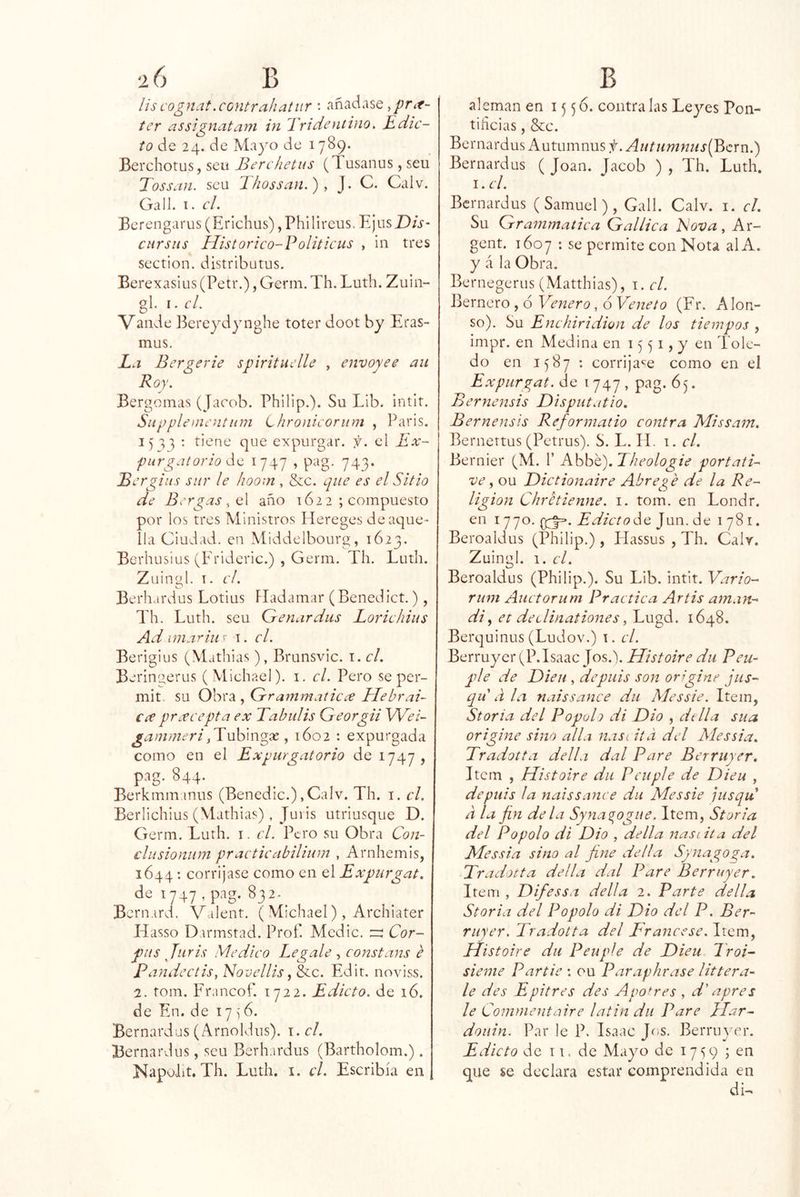 26 B
lis cognat.contrahatur : añadase, præ-
ter assignatam in Tridentino. Edic-
to de 24. de Mayo de 1789.
Berchotus, seu Berchetus (Tusanus, seu
Tossan. seu Thossan.), J. C. Calv.
Gall. 1. cl.
Berengarus (Erichus), Philireus. Ejus Dis-
cursus Historico-Politicus , in tres
section. distributus.
Berexasius (Petr.), Germ. Th. Luth. Zuin-
gl. 1. cl.
Vande Bereydynghe toter doot by Eras-
mus.
La Bergerie spirituelle , envoyee au
Roy.
Bergomas (Jacob. Philip.). Su Lib. intit.
Supplementum Chronicorum , Paris.
1533 : tiene que expurgar. ℣. el Ex-
purgatorio de 1747 , pag. 743.
Bergius sur le hoom , &c. que es el Sitio
de Bergas, el año 1622 ; compuesto
por los tres Ministros Hereges de aque-
lla Ciudad. en Middelbourg, 1623.
Berhusius (Frideric.) , Germ. Th. Luth.
Zuingl. 1. cl.
Berhardus Lotius Hadamar (Benedict.) ,
Th. Luth. seu Genardus Lorichius
Adimarius 1. cl.
Berigius (Mathias ), Brunsvic. 1. cl.
Beringerus ( Michael). 1. cl. Pero se per-
mit. su Obra , Grammaticæ Hebrai-
cæ præcepta ex Tabulis Georgii Wei-
gammeri, Tubingæ , 1602 : expurgada
como en el Expurgatorio de 1747 ,
pag. 844.
Berkmmanus (Benedic.), Calv. Th. 1. cl.
Berlichius (Mathias) , Juris utriusque D.
Germ. Luth. 1. cl. Pero su Obra Con-
clusionum practicabilium , Arnhemis,
1644 : corrijase como en el Expurgat.
de 1747 , pag. 832.
Bernard. Valent. (Michael) , Archiater
Hasso Darmstad. Prof. Medic. = Cor-
pus Juris Medico Legale , constans è
Pandectis, Novellis, &c. Edit. noviss.
2. tom. Francof. 1722. Edicto. de 16.
de En. de 1756.
Bernardus (Arnoldus). 1. cl.
Bernardus , seu Berhardus (Bartholom.) .
Napolit. Th. Luth. 1. cl. Escribía en
B
aleman en 1556. contra las Leyes Pon-
tificias , &c.
Bernardus Autumnus ℣. Autumnus (Bern.)
Bernardus ( Joan. Jacob ) , Th. Luth.
1. cl.
Bernardus (Samuel) , Gall. Calv. 1. cl.
Su Grammatica Gallica Nova , Ar-
gent. 1607 : se permite con Nota al A.
y á la Obra.
Bernegerus (Matthias), 1. cl.
Bernero , ó Venero , ó Veneto (Fr. Alon-
so). Su Enchiridion de los tiempos ,
impr. en Medina en 1551 , y en Tole-
do en 1587 : corrijase como en el
Expurgat. de 1747 , pag. 65.
Bernensis Disputatio.
Bernensis Reformatio contra Missam.
Bernettus (Petrus). S. L. H. 1. cl.
Bernier (M. l' Abbè). Theologie portati-
ve , ou Dictionaire Abregè de la Re-
ligion Chrêtienne. 1. tom. en Londr.
en 1770. ☞. Edicto de Jun. de 1781.
Beroaldus (Philip.) , Hassus , Th. Calv.
Zuingl. 1. cl.
Beroaldus (Philip.). Su Lib. intit. Vario-
rum Auctorum Practica Artis aman-
di, et declinationes, Lugd. 1648.
Berquinus (Ludov.) 1. cl.
Berruyer (P. Isaac Jos.). Histoire du Peu-
ple de Dieu , depuis son origine jus-
qu' à la naissance du Messie. Item,
Storia del Popolo di Dio , della sua
origine sino alla nascità del Messia.
Tradotta della dal Pare Berruyer.
Item , Histoire du Peuple de Dieu ,
depuis la naissance du Messie jusqu'
à la fin de la Synagogue. Item, Storia
del Popolo di Dio , della nascita del
Messia sino al fine della Synagoga.
Tradotta della dal Pare Berruyer.
Item , Difessa della 2. Parte della
Storia del Popolo di Dio del P. Ber-
ruyer. Tradotta del Francese. Item,
Histoire du Peuple de Dieu. Troi-
sieme Partie : ou Paraphrase littera-
le des Epitres des Apotres , d' apres
le Commentaire latin du Pare Har-
douin. Par le P. Isaac Jos. Berruyer.
Edicto de 11. de Mayo de 1759 ; en
que se declara estar comprendida en
di-